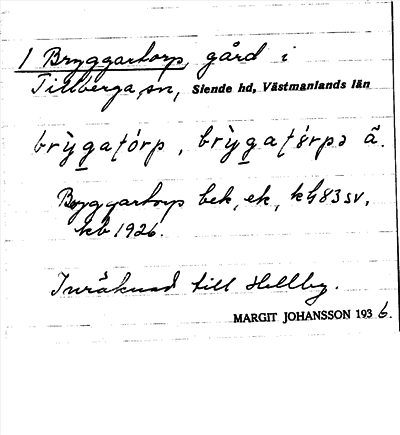 1 Bryggartorp, gård i
Tillberga sn, Siende hd, Västmanlands län
Bryggartorp bek, ek, kh 83 sv,
kb 1926.
Inräknad till Hellby.
MARGIT JOHANSSON 1936.